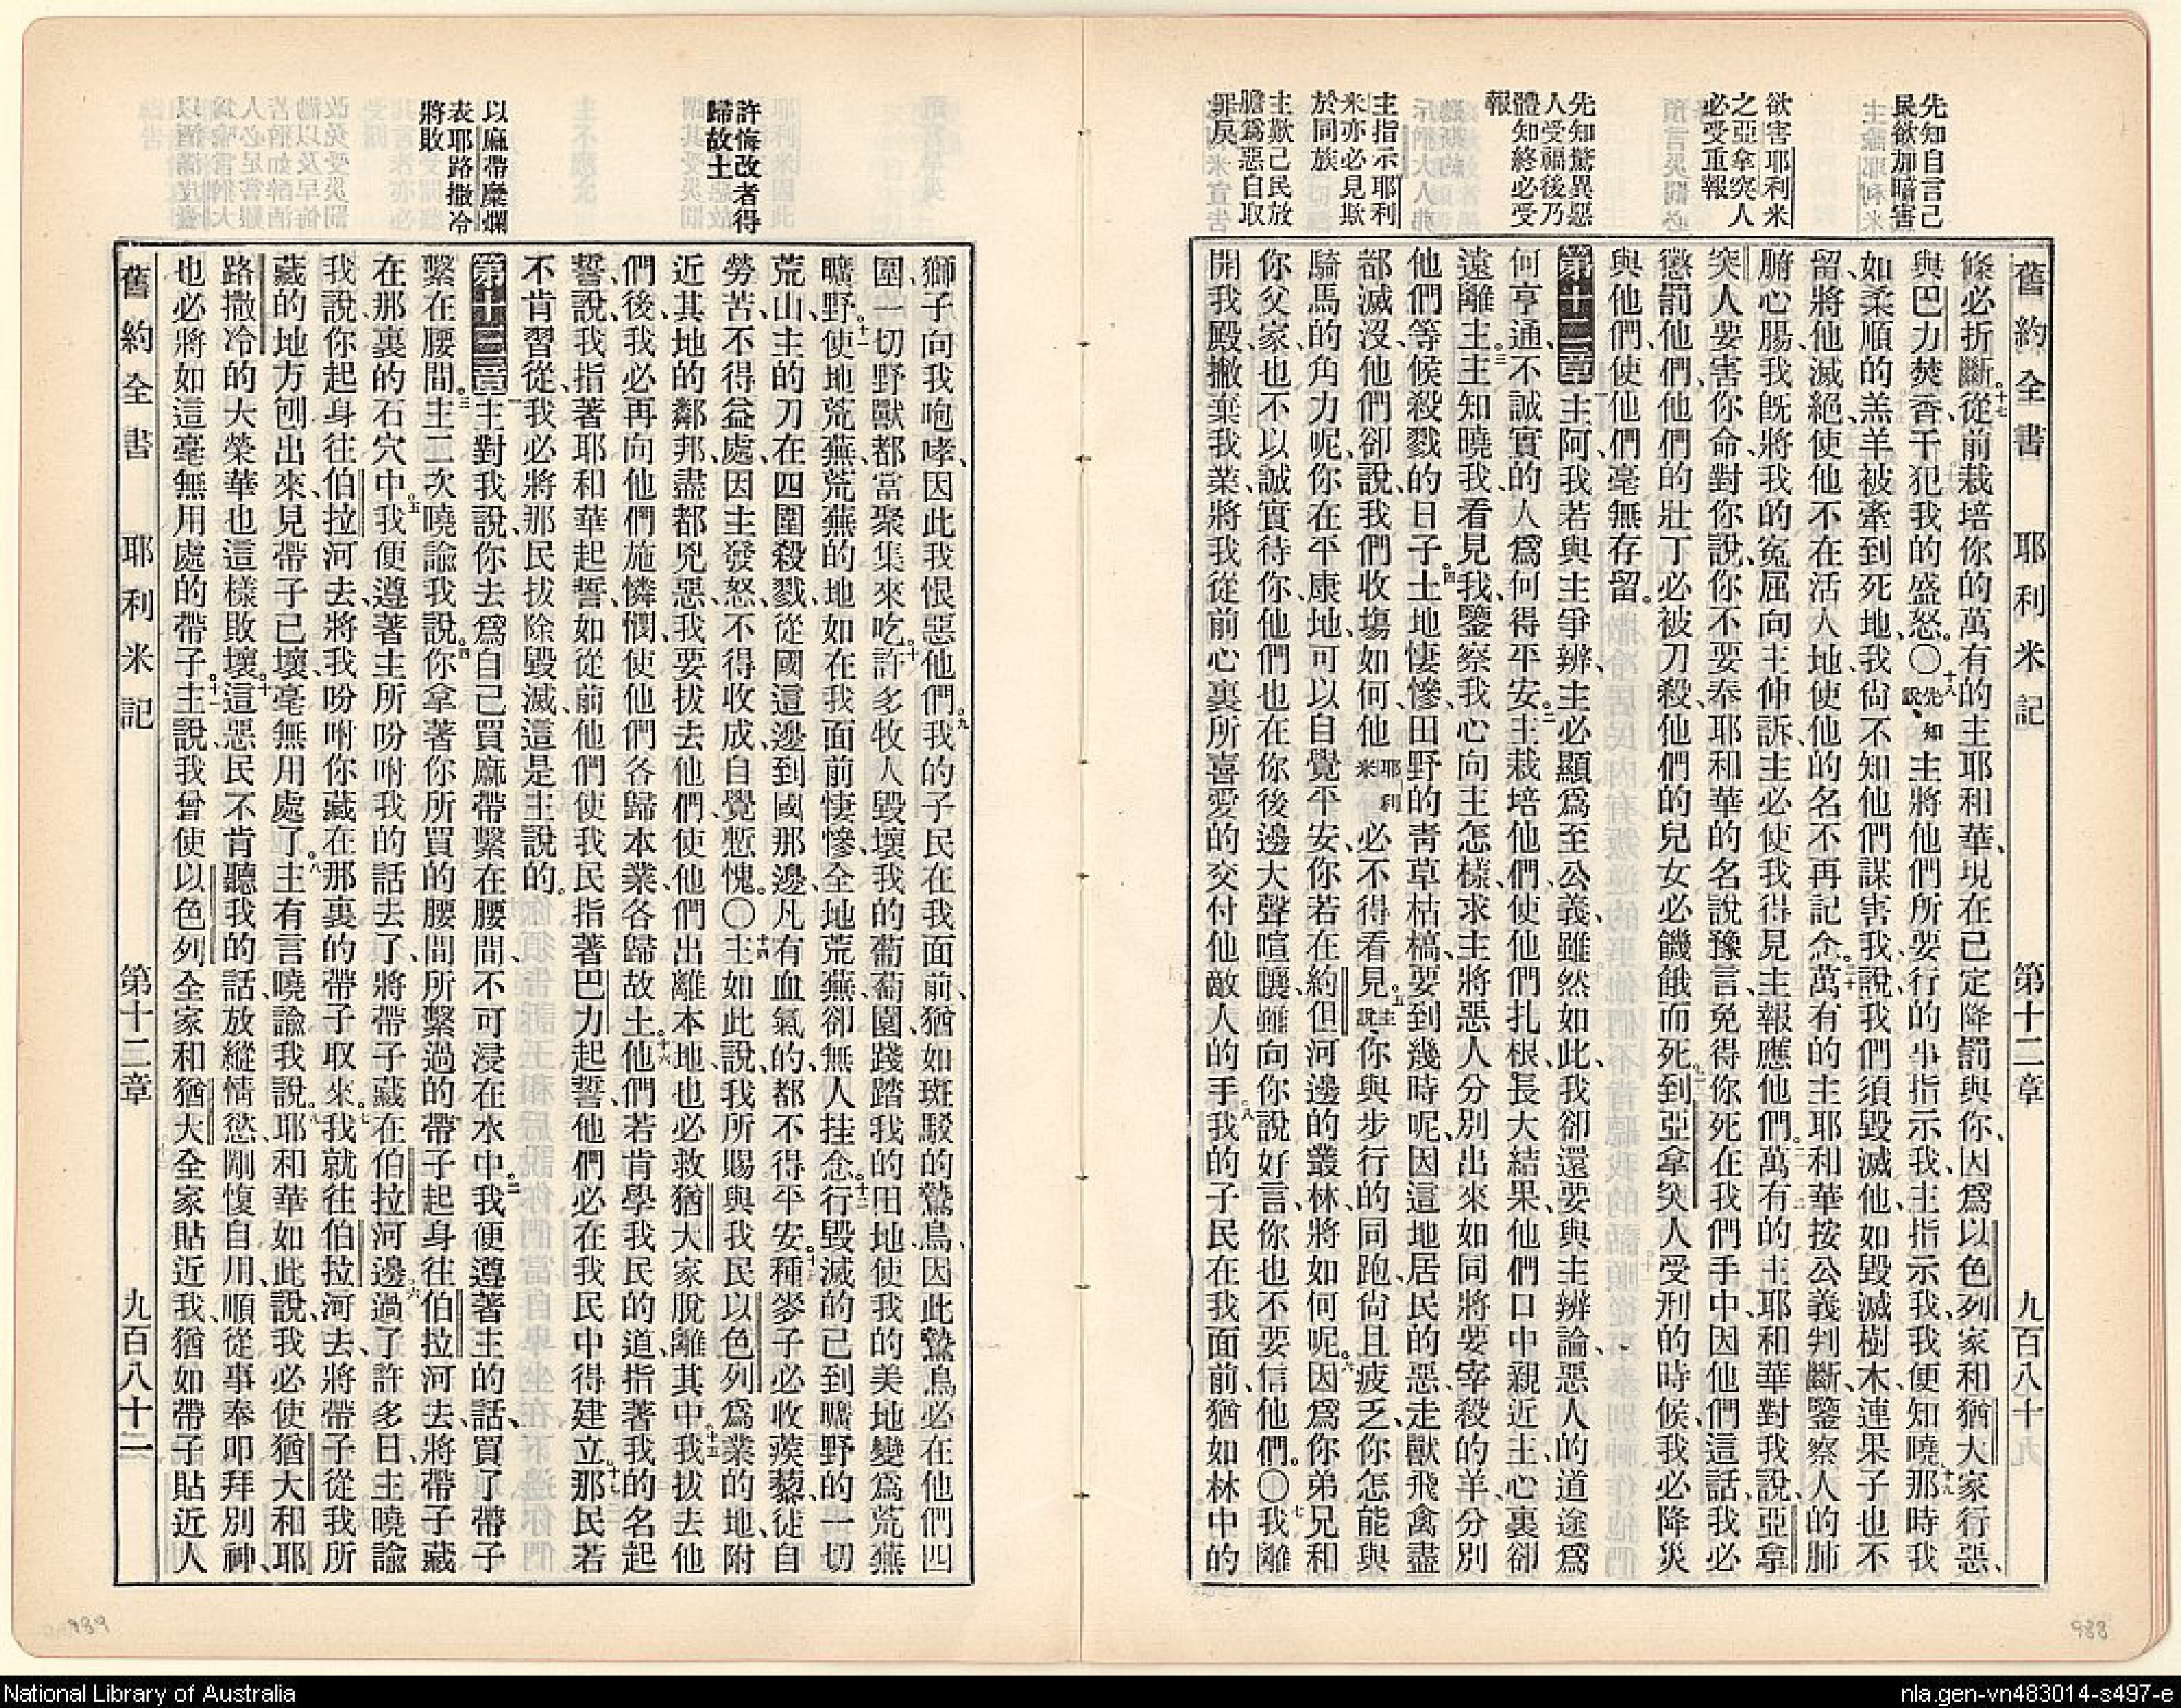 先知自言己
民欲加暗害
欲害耶利米
之亞拿突人
必受重報
先知驚異惡
人受福後乃
體知終必受
報
主指示耶利
米亦必見欺
於同族
主歎己民放
膽爲惡自取
罪戾
舊約全書 耶利米記 第十二章 九百八十九
條必折斷。十七從前栽培你的萬有的主耶和華、現在已定降罰與你、因爲以色列家和猶大家行惡、
與巴力焚香、干犯我的盛怒。〇十八先知說、主將他們所要行的事指示我、主指示我、我便知曉、十九那時我
如柔順的羔羊被牽到死地、我尙不知他們謀害我、說、我們須毀滅他、如毀滅樹木、連果子也不
留、將他滅絕、使他不在活人地、使他的名不再記念。二十萬有的主耶和華、按公義判斷、鑒察人的肺
腑心腸、我旣將我的寃屈向主伸訴、主必使我得見主報應他們。二一萬有的主耶和華對我說、亞拿
突人要害你命、對你說、你不要奉耶和華的名說豫言、免得你死在我們手中、因他們這話、我必
懲罰他們、他們的壯丁必被刀殺、他們的兒女必饑餓而死、到亞拿突人受刑的時候、我必降災
與他們、使他們毫無存留。
第十二章 一主阿、我若與主爭辨、主必顯爲至公義、雖然如此、我卻還要與主辨論、惡人的道途爲
何亨通、不誠實的人爲何得平安。二主栽培他們、使他們扎根、長大結果、他們口中親近主、心裏卻
遠離主。三主知曉我、看見我、鑒察我心向主怎樣、求主將惡人分別出來、如同將要宰殺的羊、分別
他們等候殺戮的日子。四土地悽慘、田野的靑草枯槁、要到幾時呢、因這地居民的惡、走獸飛禽盡
都滅沒、他們卻說、我們收塲如何、他耶利米必不得看見。五主說、你與步行的同跑、尙且疲乏、你怎能與
騎馬的角力呢、你在平康地、可以自覺平安、你若在約但河邊的叢林、將如何呢。六因爲你弟兄和
你父家、也不以誠實待你、他們也在你後邊大聲喧嚷、雖向你說好言、你也不要信他們。〇七我離
開我殿、撇棄我業、將我從前心裏所喜愛的交付他敵人的手。八我的子民在我面前、猶如林中的
許悔改者得
歸故土
以麻帶糜爛
表耶路撒冷
將敗
獅子向我咆哮、因此我恨惡他們。九我的子民在我面前、猶如斑駁的鷙鳥、因此鷙鳥必在他們四
圍、一切野獸都當聚集來吃。十許多牧人毀壞我的葡萄園、踐踏我的田地、使我的美地變爲荒蕪
曠野。十一使地荒蕪、荒蕪的地如在我面前悽慘、全地荒蕪、卻無人挂念。十二行毀滅的已到曠野的一切
荒山、主的刀在四圍殺戮、從國這邊到國那邊、凡有血氣的、都不得平安。十三種麥子必收蒺藜、徒自
勞苦、不得益處、因主發怒、不得收成、自覺慙愧。〇十四主如此說、我所賜與我民以色列爲業的地、附
近其地的鄰邦、盡都兇惡、我要拔去他們、使他們出離本地、也必救猶大家脫離其中。十五我拔去他
們後、我必再向他們施憐憫、使他們各歸本業、各歸故土。十六他們若肯學我民的道、指著我的名起
誓、說、我指著耶和華起誓、如從前他們使我民指著巴力起誓、他們必在我民中得建立。十七那民若
不肯習從、我必將那民拔除毀滅、這是主說的。
第十三章 一主對我說、你去爲自己買麻帶繫在腰間、不可浸在水中。二我便遵著主的話、買了帶子
繫在腰間。三主二次曉諭我說、四你拿著你所買的腰間所繫過的帶子、起身往伯拉河去、將帶子藏
在那裏的石穴中。五我便遵著主所吩咐我的話去了、將帶子藏在伯拉河邊。六過了許多日、主曉諭
我說、你起身往伯拉河去、將我吩咐你藏在那裏的帶子取來。七我就往伯拉河去、將帶子從我所
藏的地方刨出來、見帶子已壞、毫無用處了。八主有言曉諭我說、九耶和華如此說、我必使猶大和耶
路撒冷的大榮華也這樣敗壞。十這惡民不肯聽我的話、放縱情慾、剛愎自用、順從事奉叩拜別神、
也必將如這毫無用處的帶子。十一主說、我曾使以色列全家和猶大全家貼近我、猶如帶子貼近人
舊約全書 耶利米記 第十二章 九百八十二
989
988
National Library of Australia
nla.gen-vn483014-s497-e